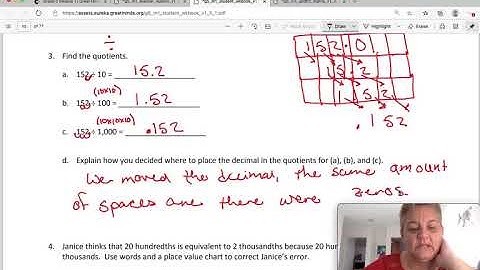 https://assets.eureka.greatminds.org/g5_m1_student_edition_v1_3_1.pdf
÷
3. Find the quotients.
a. 152 ÷ 10 = 15.2
(10x10)
b. 152 ÷ 100 = 1.52
(10x10x10)
c. 152 ÷ 1,000 = .152
1 5 2 . 0
1 5 . 2
1 5 2
. 1 52
d. Explain how you decided where to place the decimal in the quotients for (a), (b), and (c).
We moved the decimal, the same amount
of spaces are there were zeros
4. Janice thinks that 20 hundredths is equivalent to 2 thousandths because 20 hun
thousands. Use words and a place value chart to correct Janice's error.